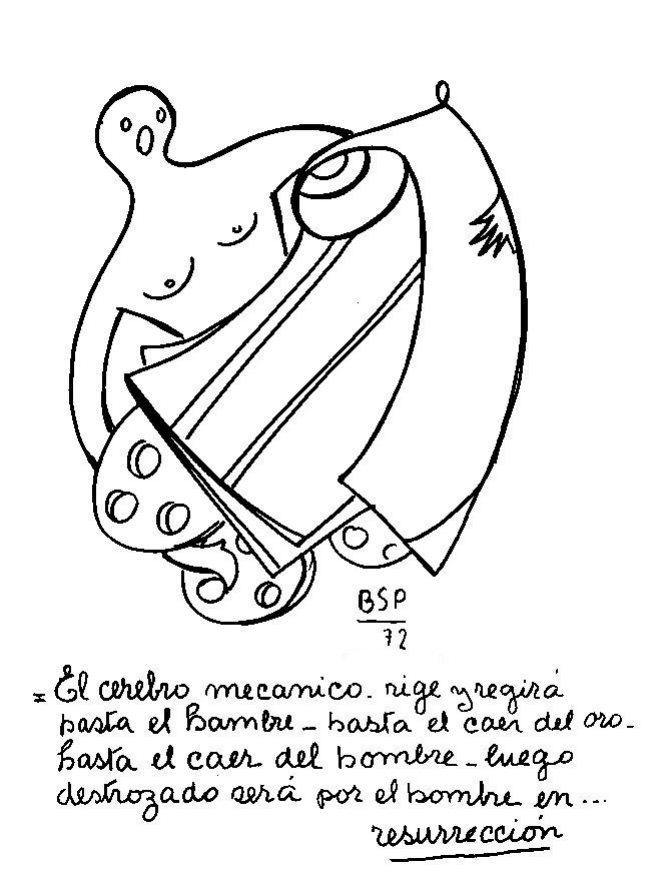 BSP
72
= El cerebro mecanico. rige y regirá
hasta el hambre - hasta el caer del oro -
hasta el caer del hombre - luego
destrozado será por el hombre en ...
resurrección